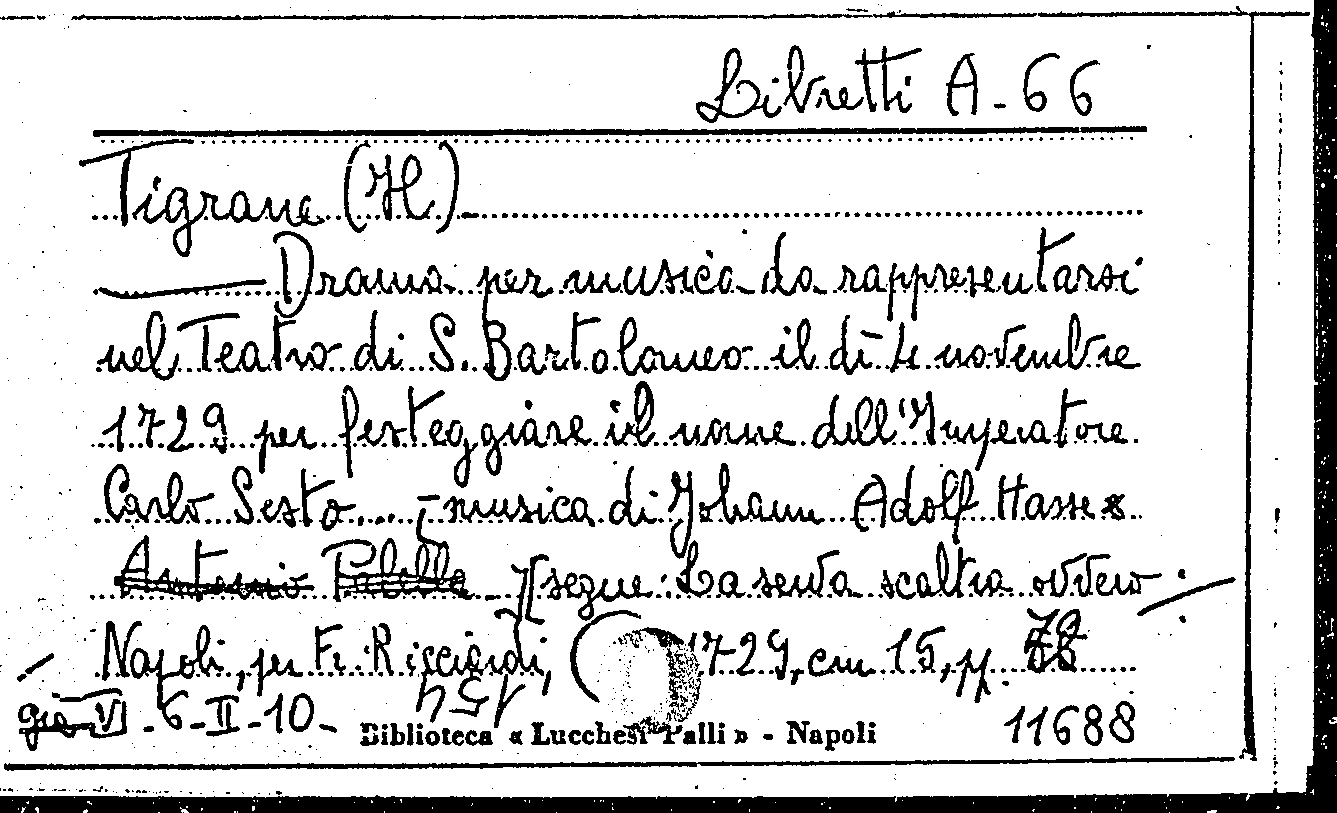 Libretti A-66
Tigrane (Il)
Drama per musica da rappresentarsi
nel Teatro di S. Bartolomeo il dì 4 novembre
1729 per festeggiare il nome dell'Imperatore
Carlo Sesto..., - musica di Johann Adolf Hasse
Antonio Palella - [segue: La serva scaltra ovvero
Napoli, per Fr. Ricciardi, 1729, cm 15, pp.
già VI - 6 - II - 10 -
Biblioteca « Lucchesi Palli » - Napoli
11688